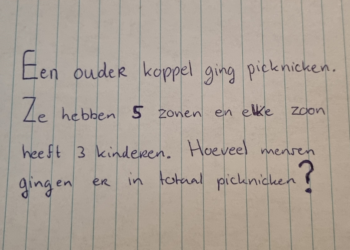 Een ouder koppel ging picknicken.
Ze hebben 5 zonen en elke zoon
heeft 3 kinderen. Hoeveel mensen
gingen er in totaal picknicken?